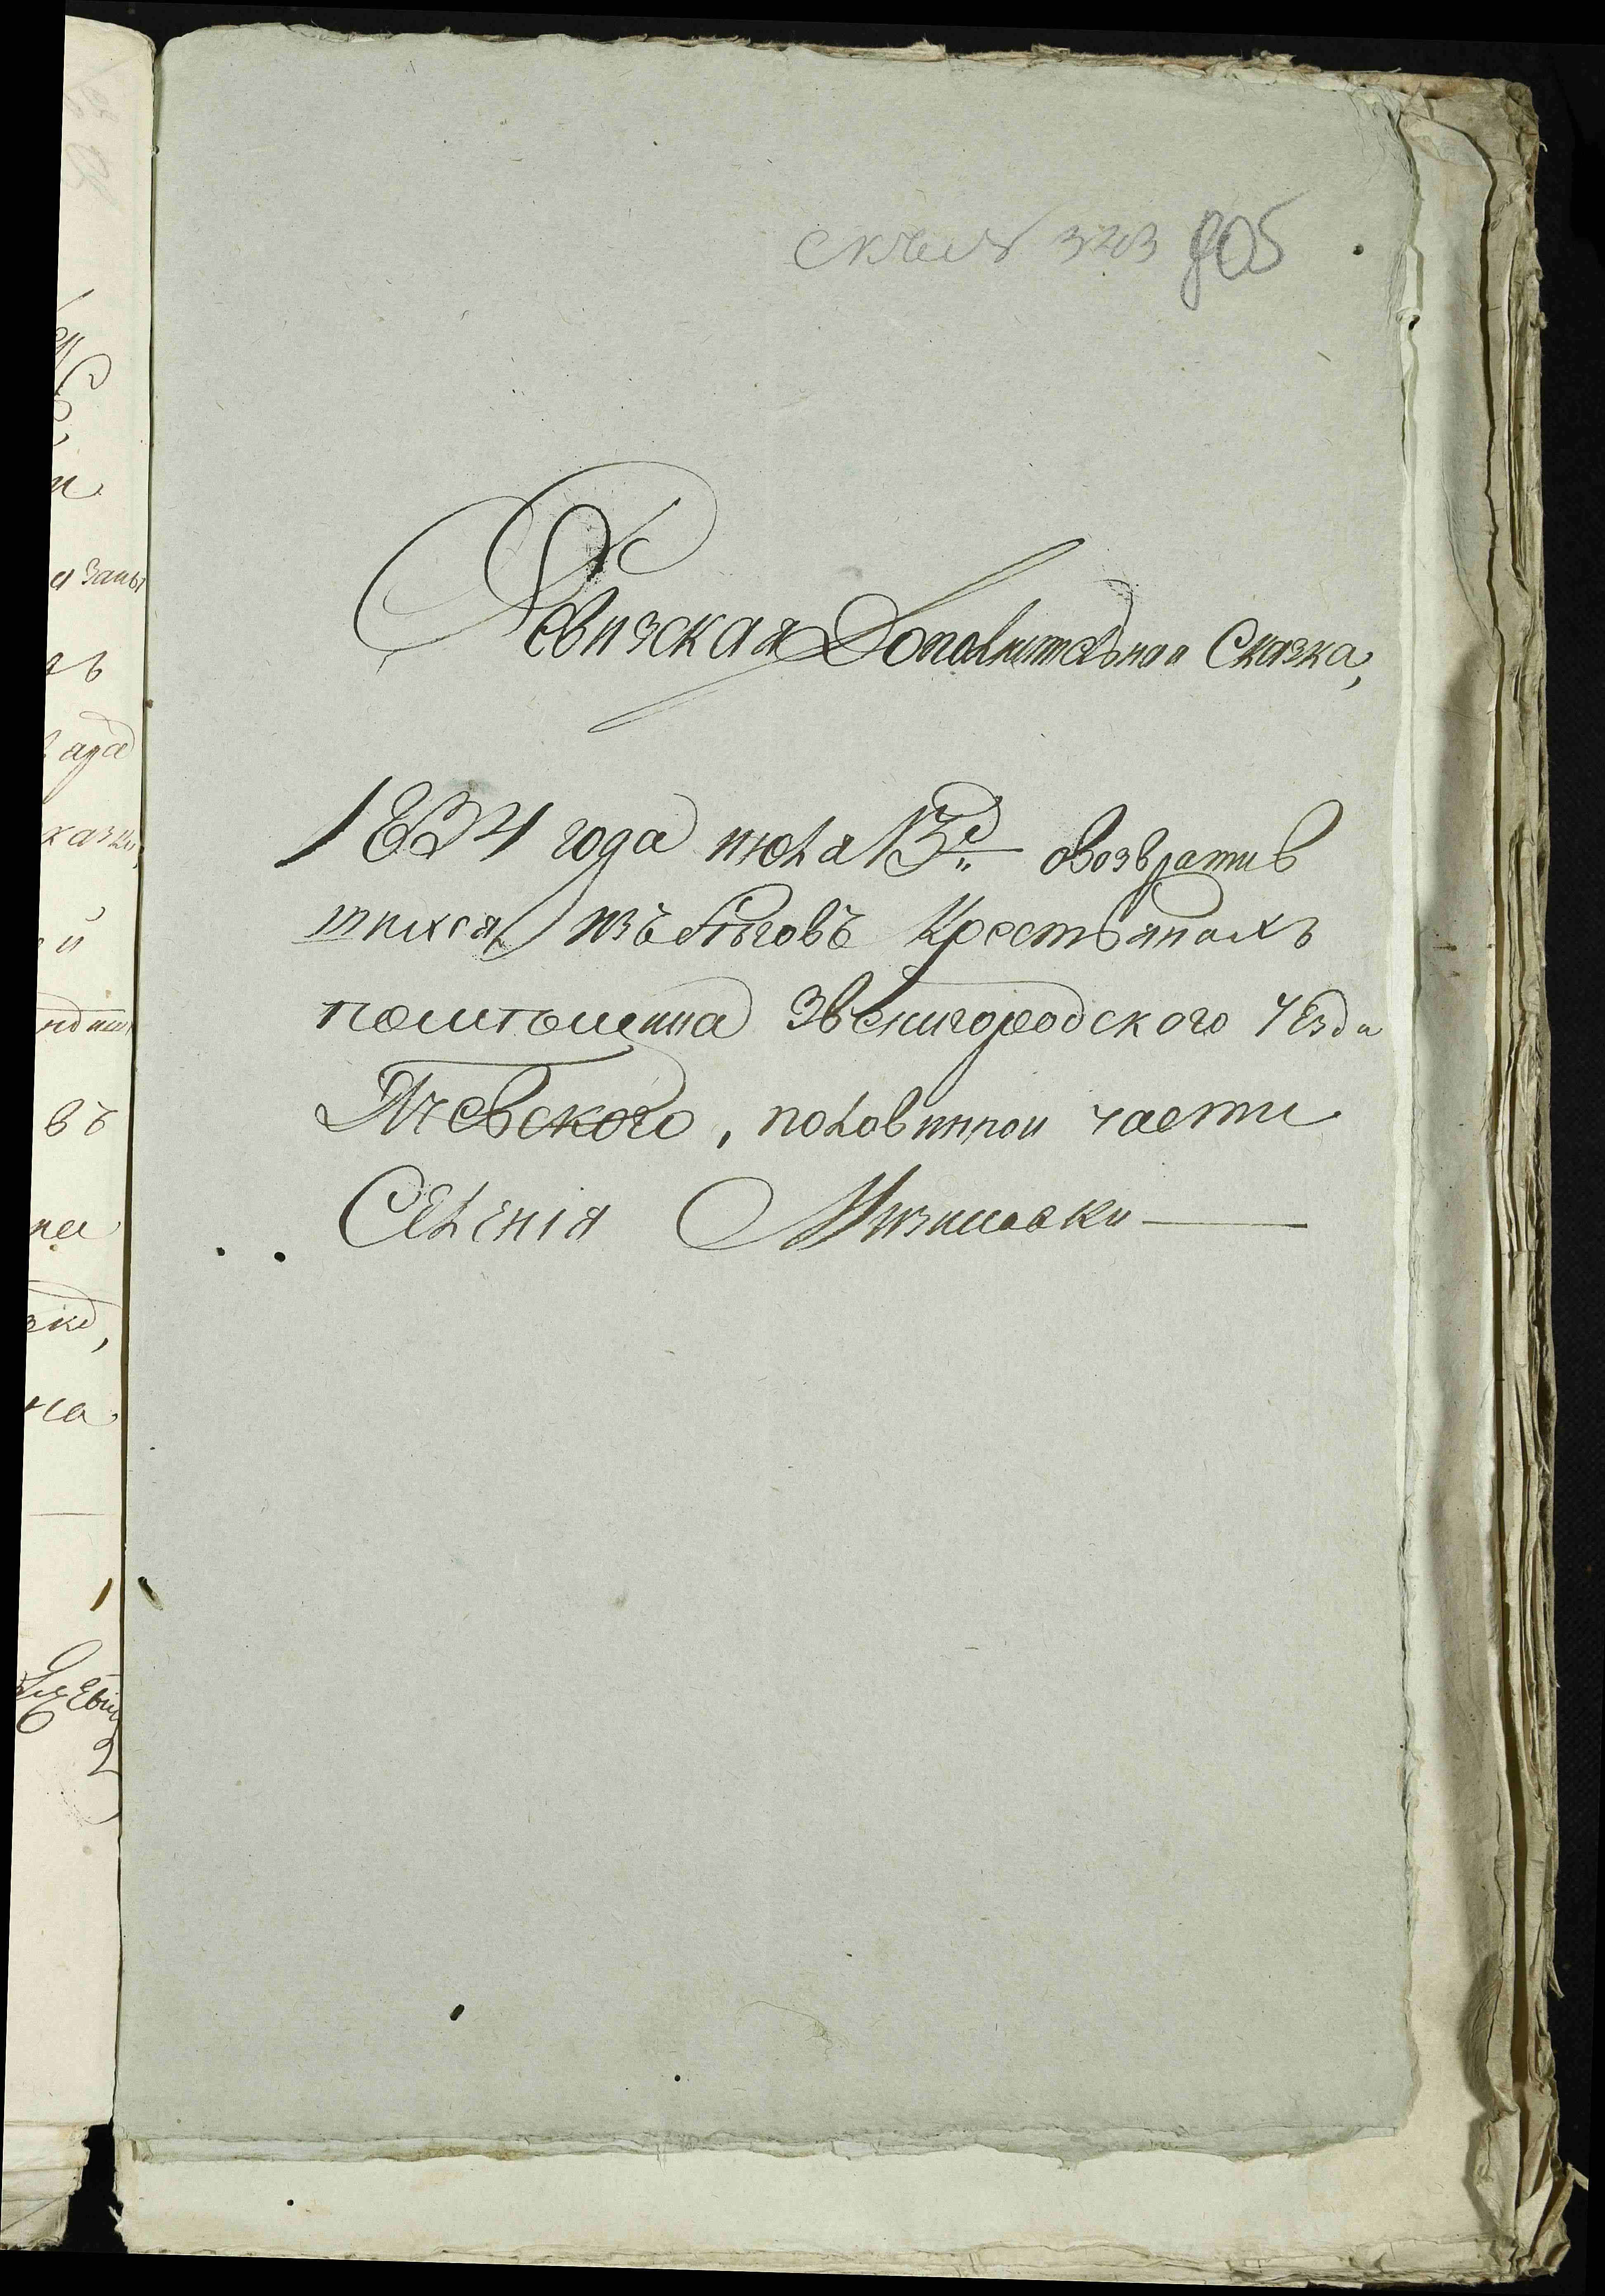 323 805
Ревизская Дополнительная Сказка,
1834 года июля 13д. овозвратив
шихся изъ бѣговъ Крестьянахъ
помѣщика Звенигородского уезда
половинной части
Селенія